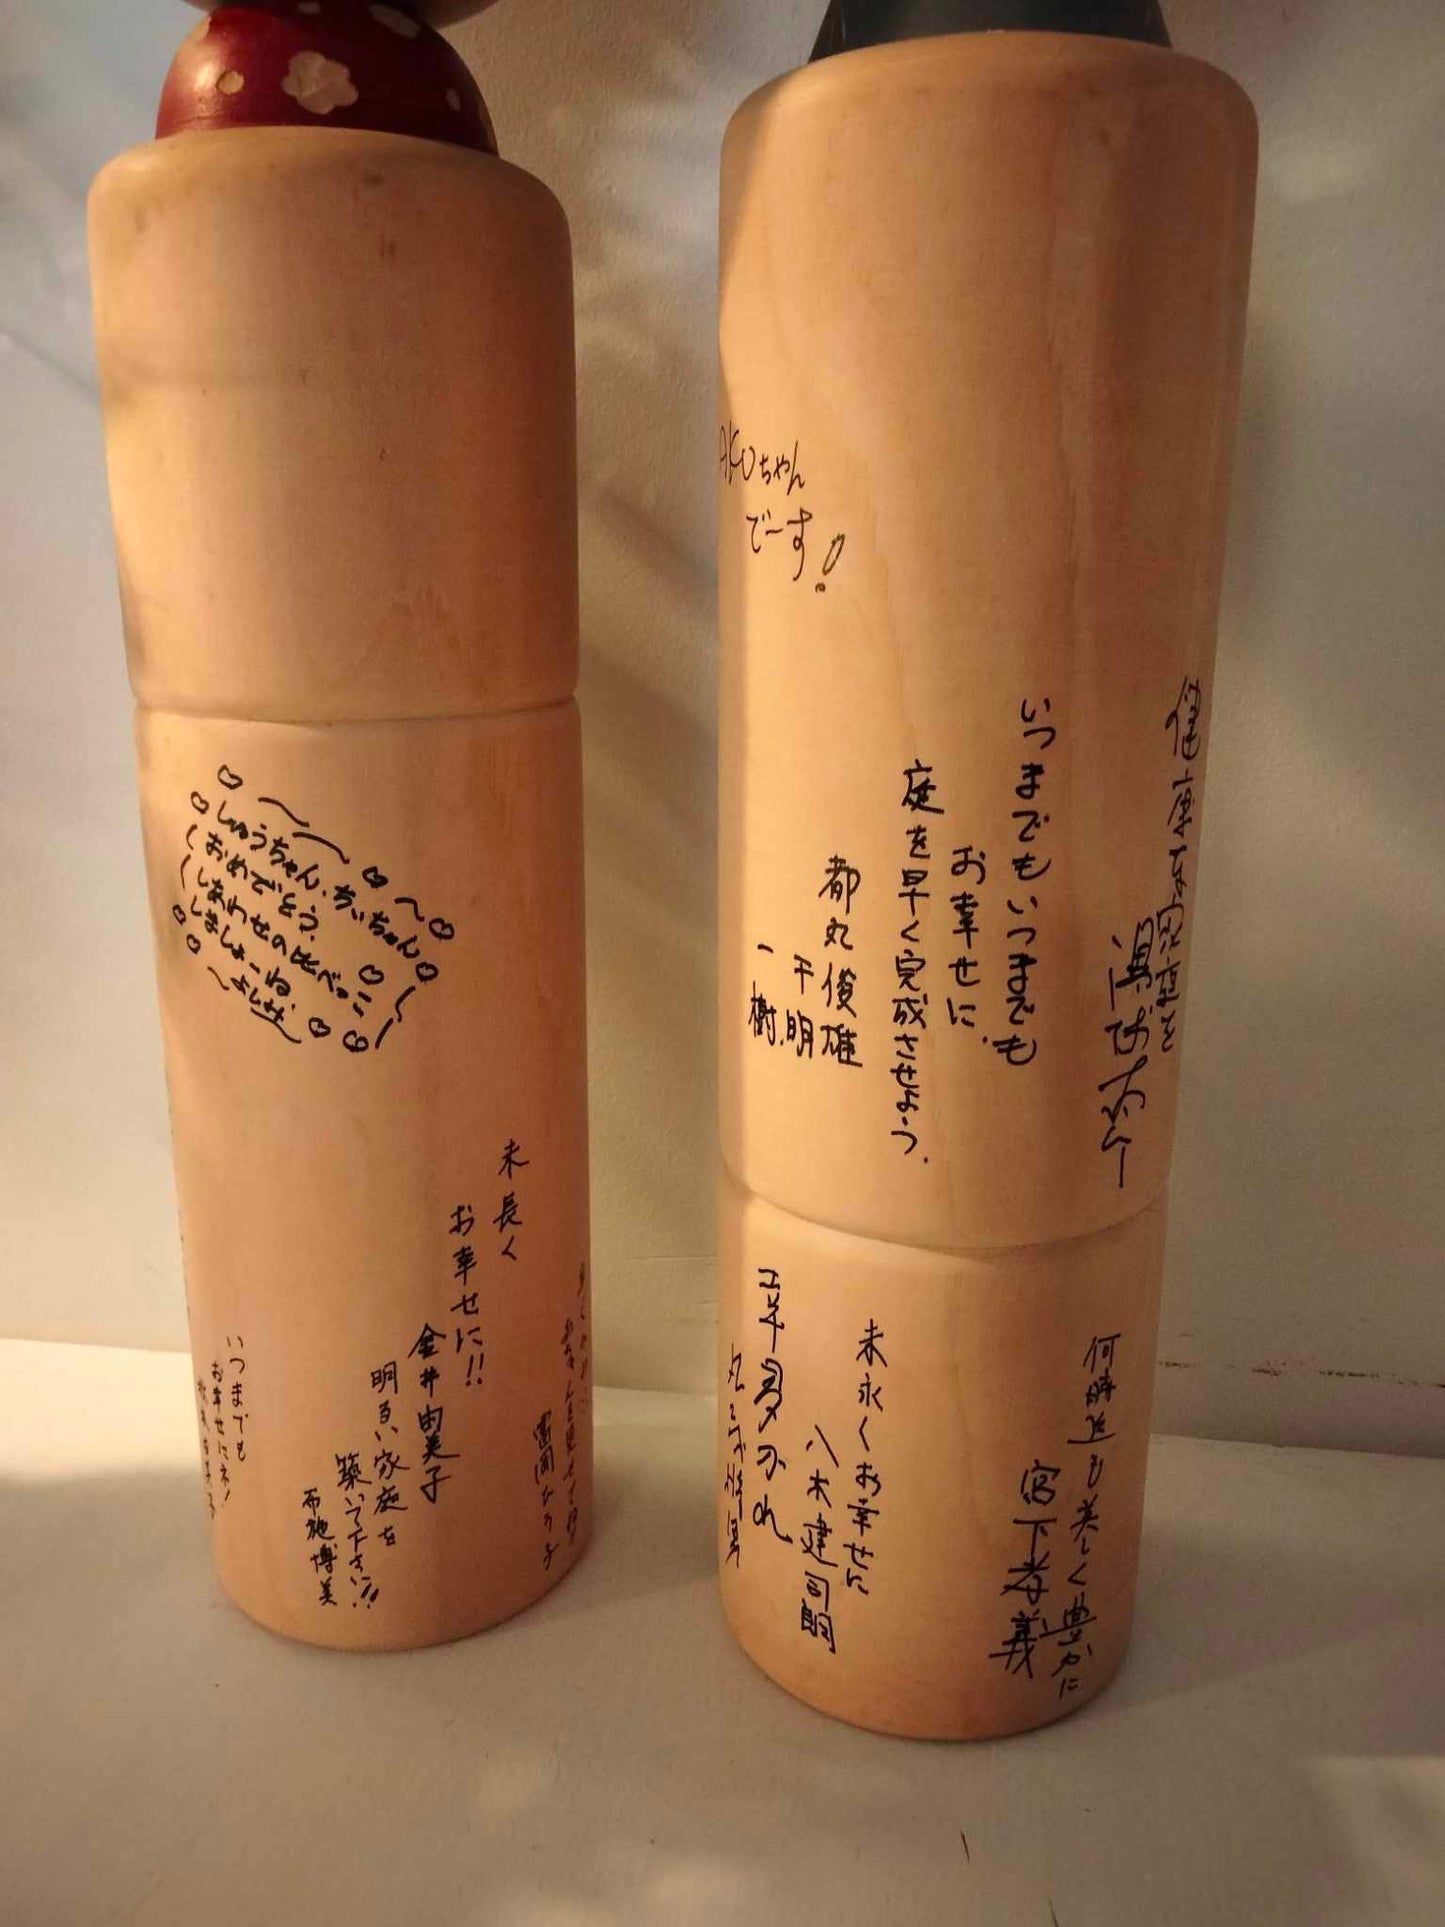 しゅうちゃん、ちぃちゃん
おめでとう。
しあわせの比べっこ
しましょーね。
よしみ
末長く
お幸せに!!
金井由美子
明るい家庭を
築いて下さい!!
布施博美
いつまでも
お幸せにネ!
富岡ひろ子
AKOちゃん
で〜す!
健康な家庭を
いつまでもいつまでも
お幸せに.
庭を早く完成させよう.
都丸俊雄
千明
一樹.
何時迄も美しく豊かに
宮下孝義
末永くお幸せに
八木建司朗
幸多かれ